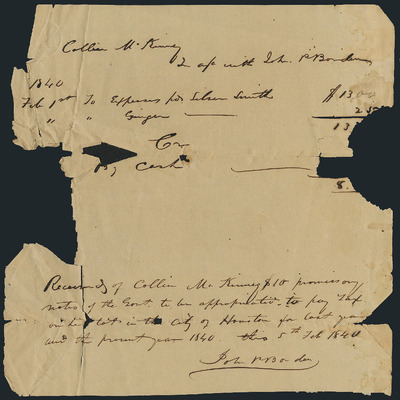 Collin McKinney
In a/c with Jno. P Borden
1840
Feb 1st To Expenses for Silver Smith $13.00
" " Ginger 25
13
Cr
By Cash
8.
Received of Collin McKinney $10 promissory
notes of the Govt to be appropriated to pay Tax
on his lots in the City of Houston for last year
and the present year 1840. this 5th Feb 1840
John P Borden